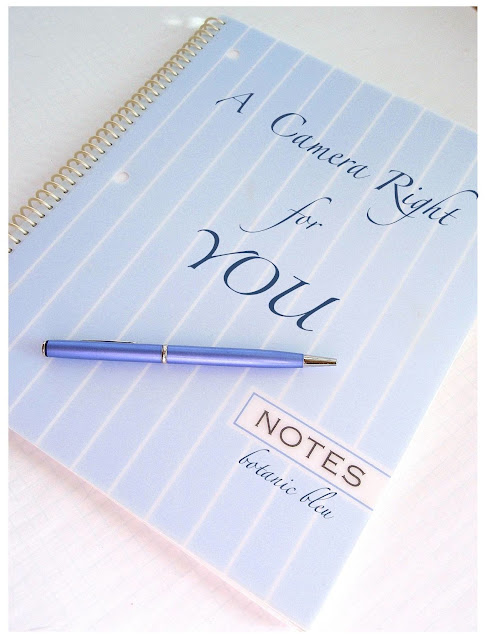 A Camera Right
for
YOU
NOTES
botanic bleu